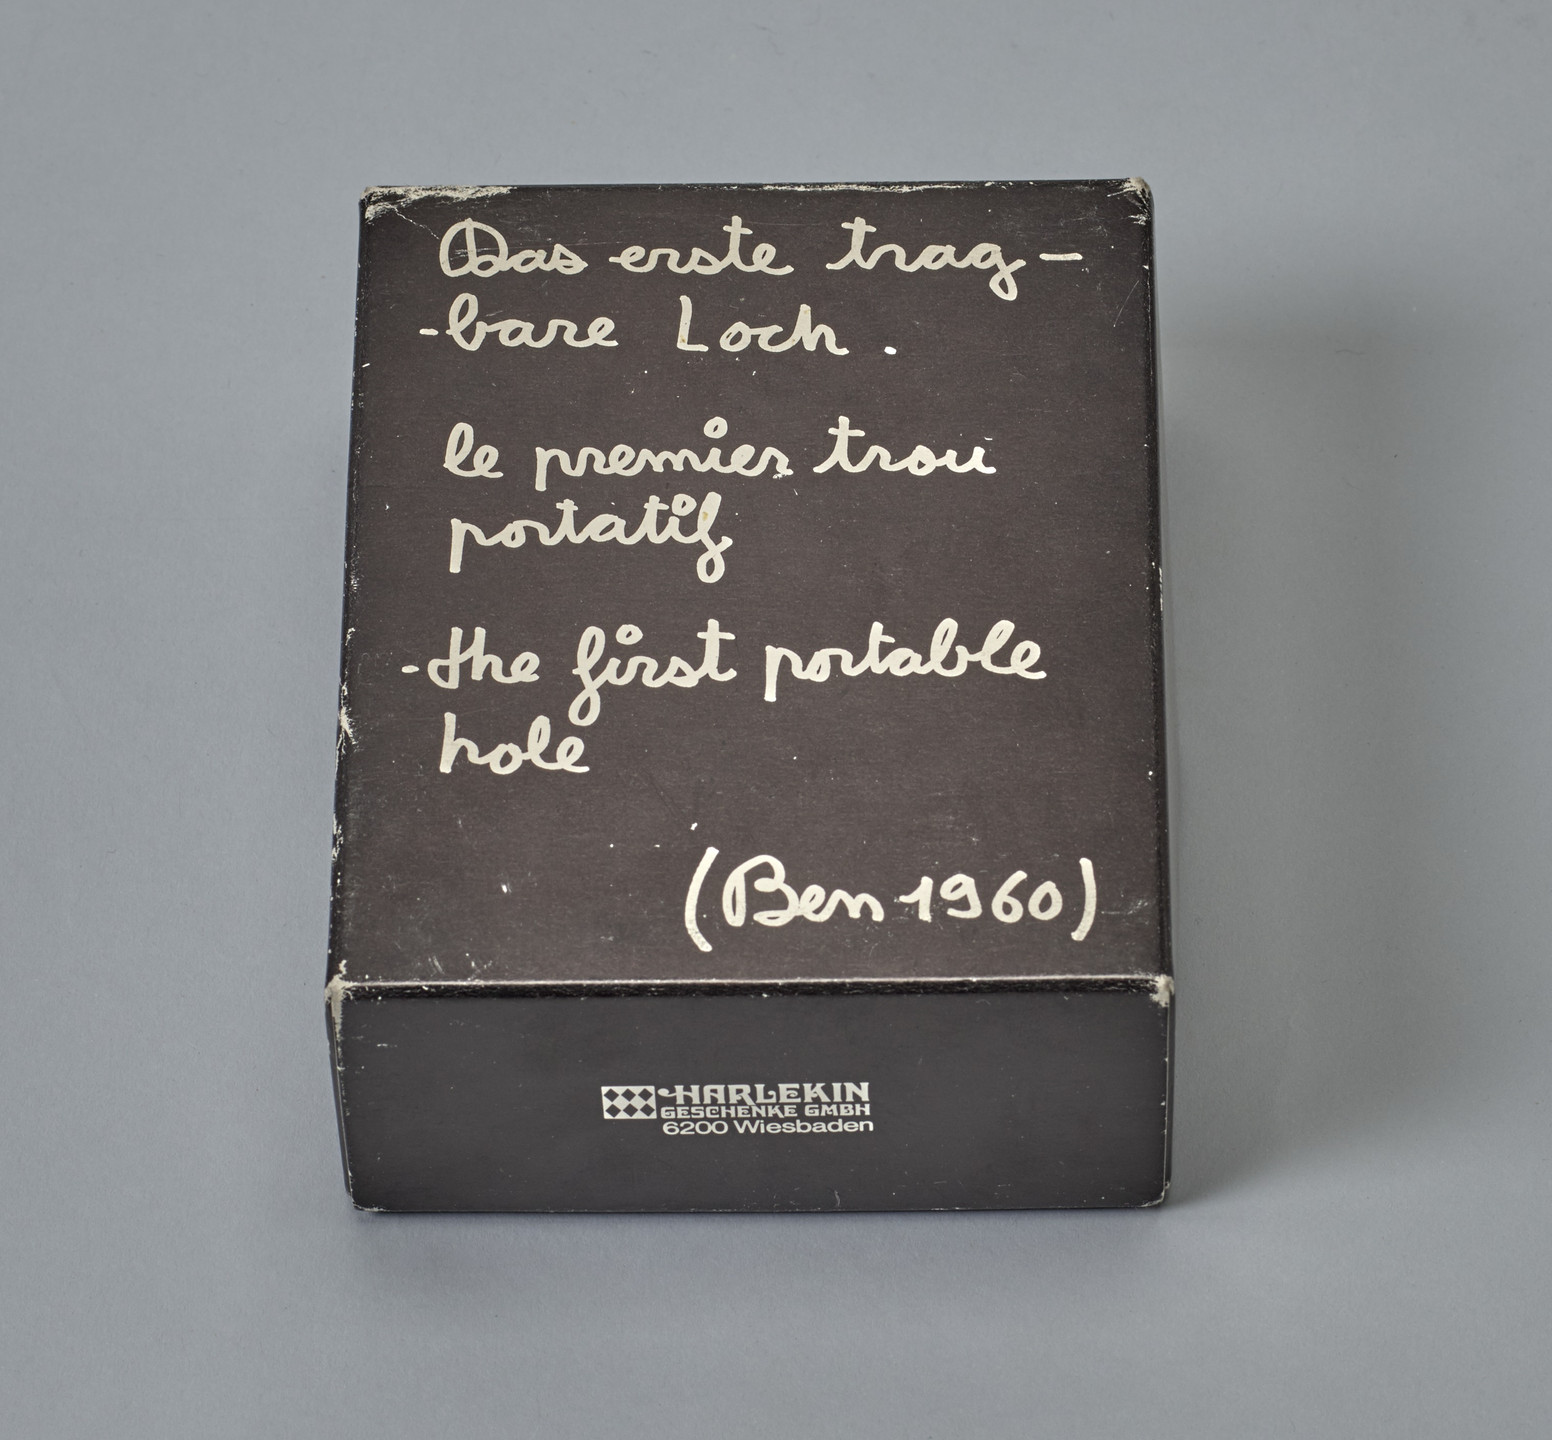 Das erste trag-
-bare Loch.
le premier trou
portatif
-the first portable
hole
(Ben 1960)
HARLEKIN
GESCHENKE GMBH
6200 Wiesbaden